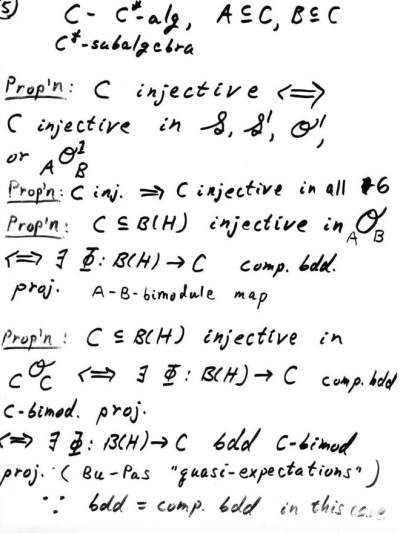 ⑤ C - C*-alg, A ⊆ C, B ⊆ C
C*-subalgebra
Prop'n: C injective ⟺
C injective in 𝒮, 𝒮', 𝒪',
or _A𝒪^1_B
Prop'n: C inj. ⟹ C injective in all 6
Prop'n: C ⊆ B(H) injective in _A𝒪_B
⟺ ∃ Φ: B(H) → C comp. bdd.
proj. A-B-bimodule map
Prop'n: C ⊆ B(H) injective in
_C𝒪_C ⟺ ∃ Φ: B(H) → C comp. bdd
C-bimod. proj.
⟺ ∃ Φ: B(H) → C bdd C-bimod
proj. (Bu-Pas "quasi-expectations")
∵ bdd = comp. bdd in this case